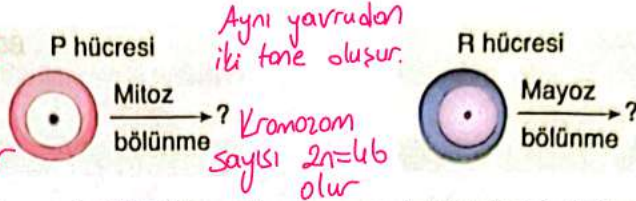 P hücresi
Mitoz
bölünme
?
Aynı yavrudan
iki tane oluşur.
Kromozom
sayısı 2n=46
olur
R hücresi
Mayoz
bölünme
?